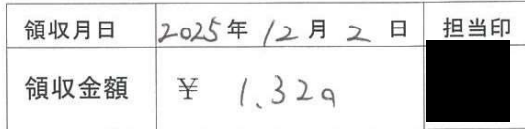 領収月日 2025年 12月 2日 担当印
領収金額 ¥ 1,320